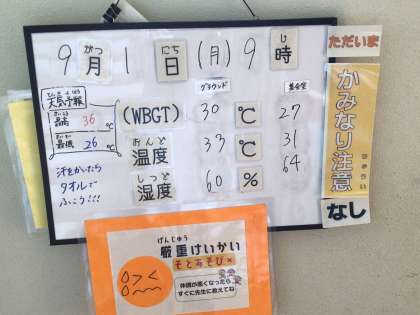 9 がつ 月 1 にち 日 (月) 9 じ 時
てんきよほう
天気予報
さいこう
最高 36 ℃
さいてい
最低 26 ℃
汗をかいたら
タオルで
ふこう!!!
グラウンド
(WBGT) 30 ℃ 27
おんど
温度 33 ℃ 31
しつど
湿度 60 % 64
ただいま
かみなり注意
なし
げんじゅう
厳重けいかい
そとあそび×
体調が悪くなったら
すぐに先生に教えてね